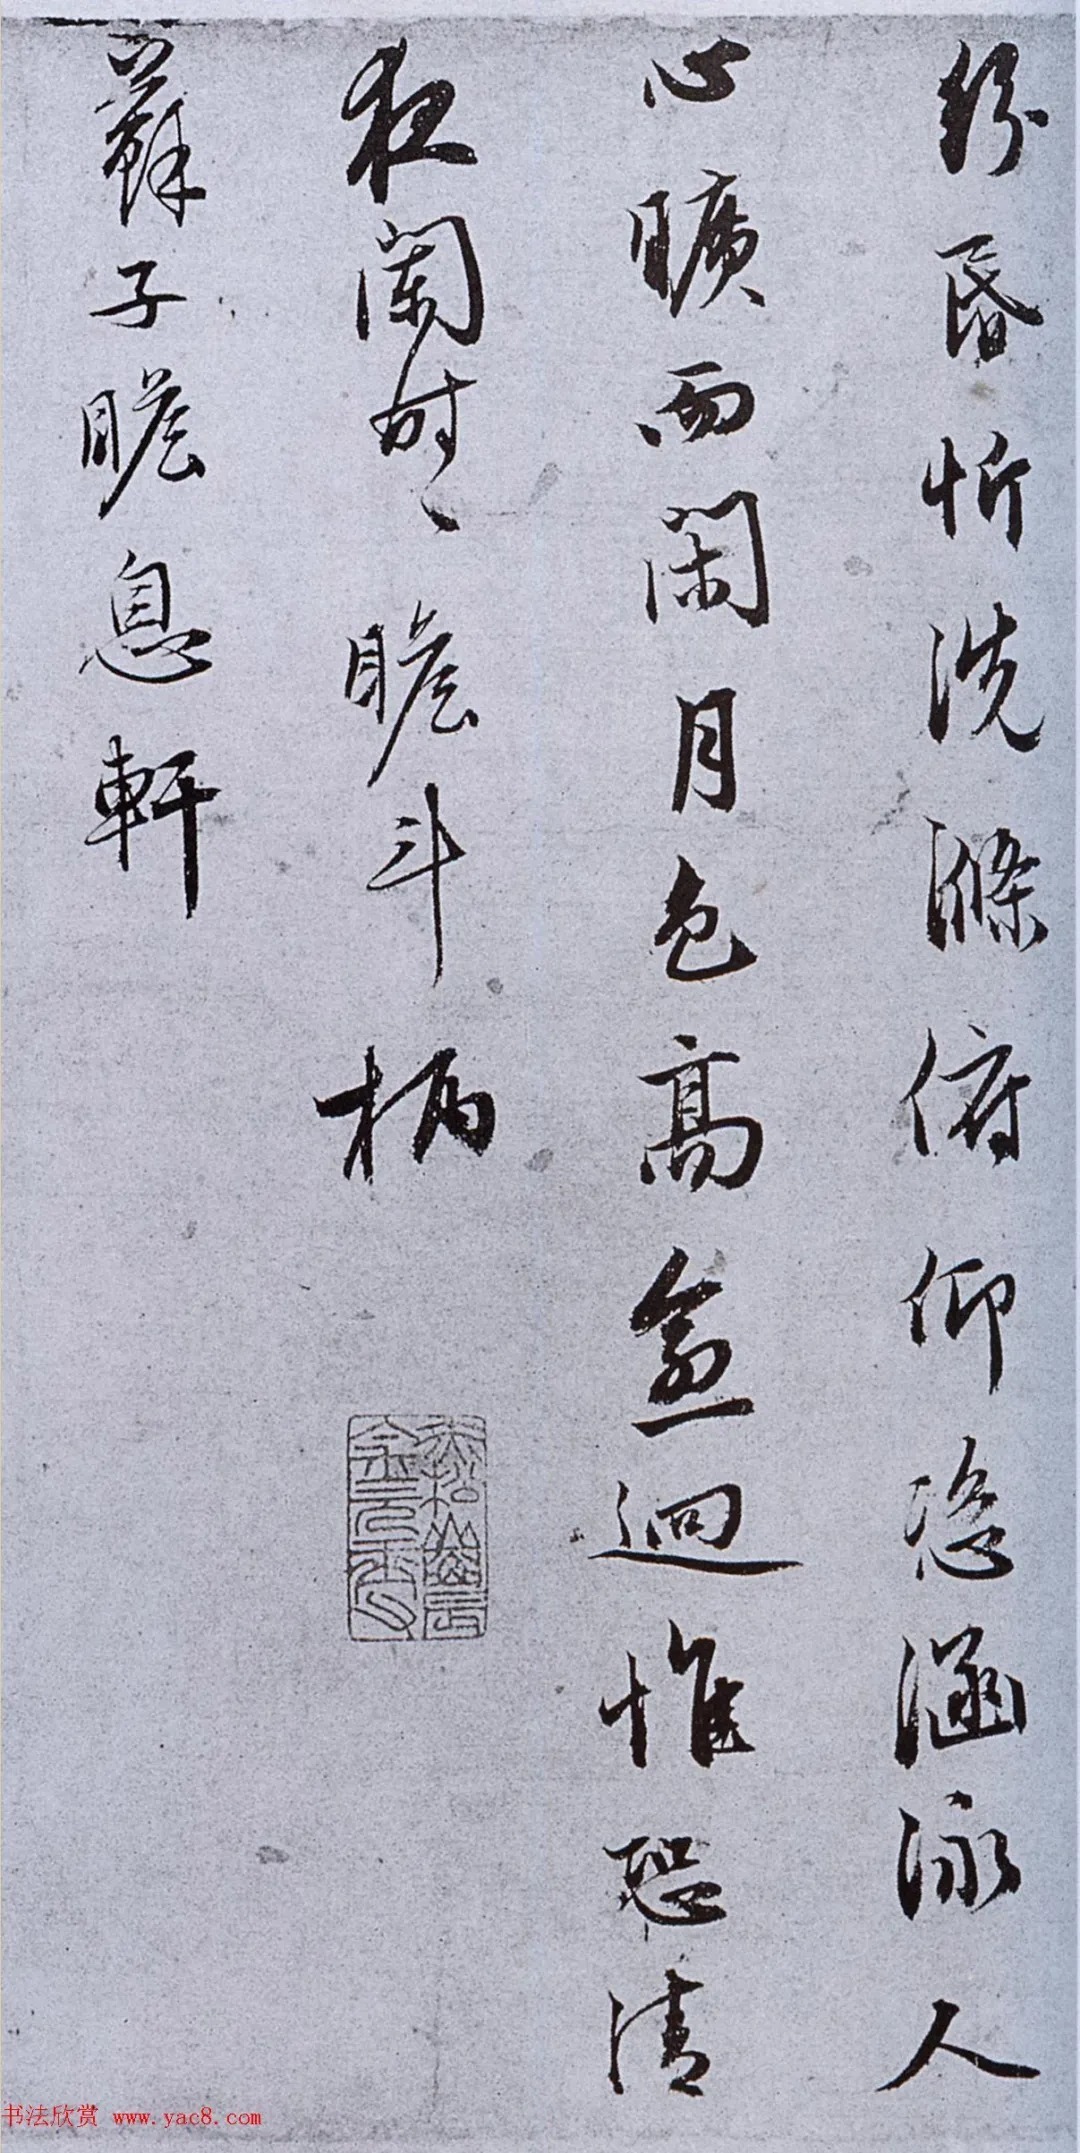 纷昏忻洗滌俯仰恣涵泳人
心曠而閑月色高愈迥惟恐清
夜闌時〻瞻斗柄
蘇子瞻息軒
书法欣赏 www.yac8.com